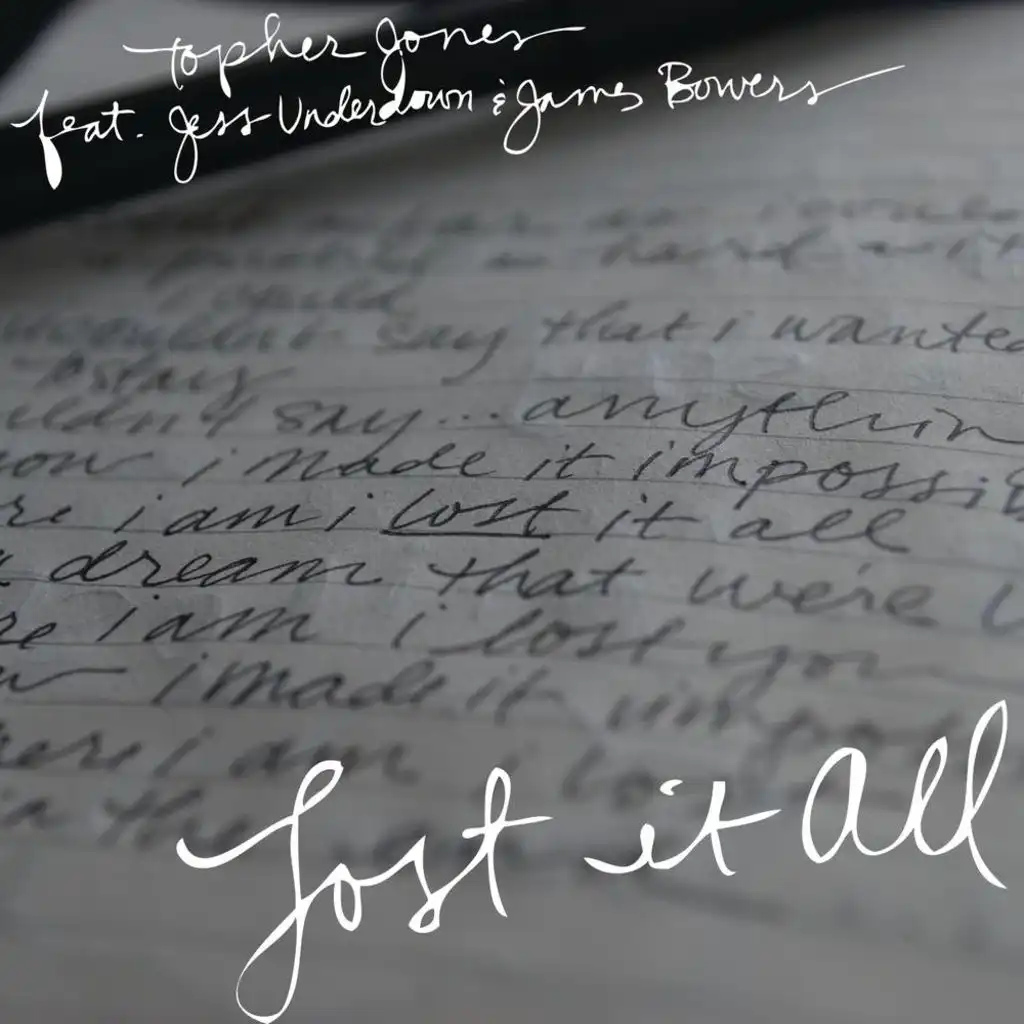 topher Jones
feat. Jess Underdown & James Bowers
i could
wouldn't say that i wanted
to stay
say... anythin
now i made it impossib
re i am i lost it all
dream that we're
re i am i lost you
w i made it impos
here i am i lo
in the
Lost it All